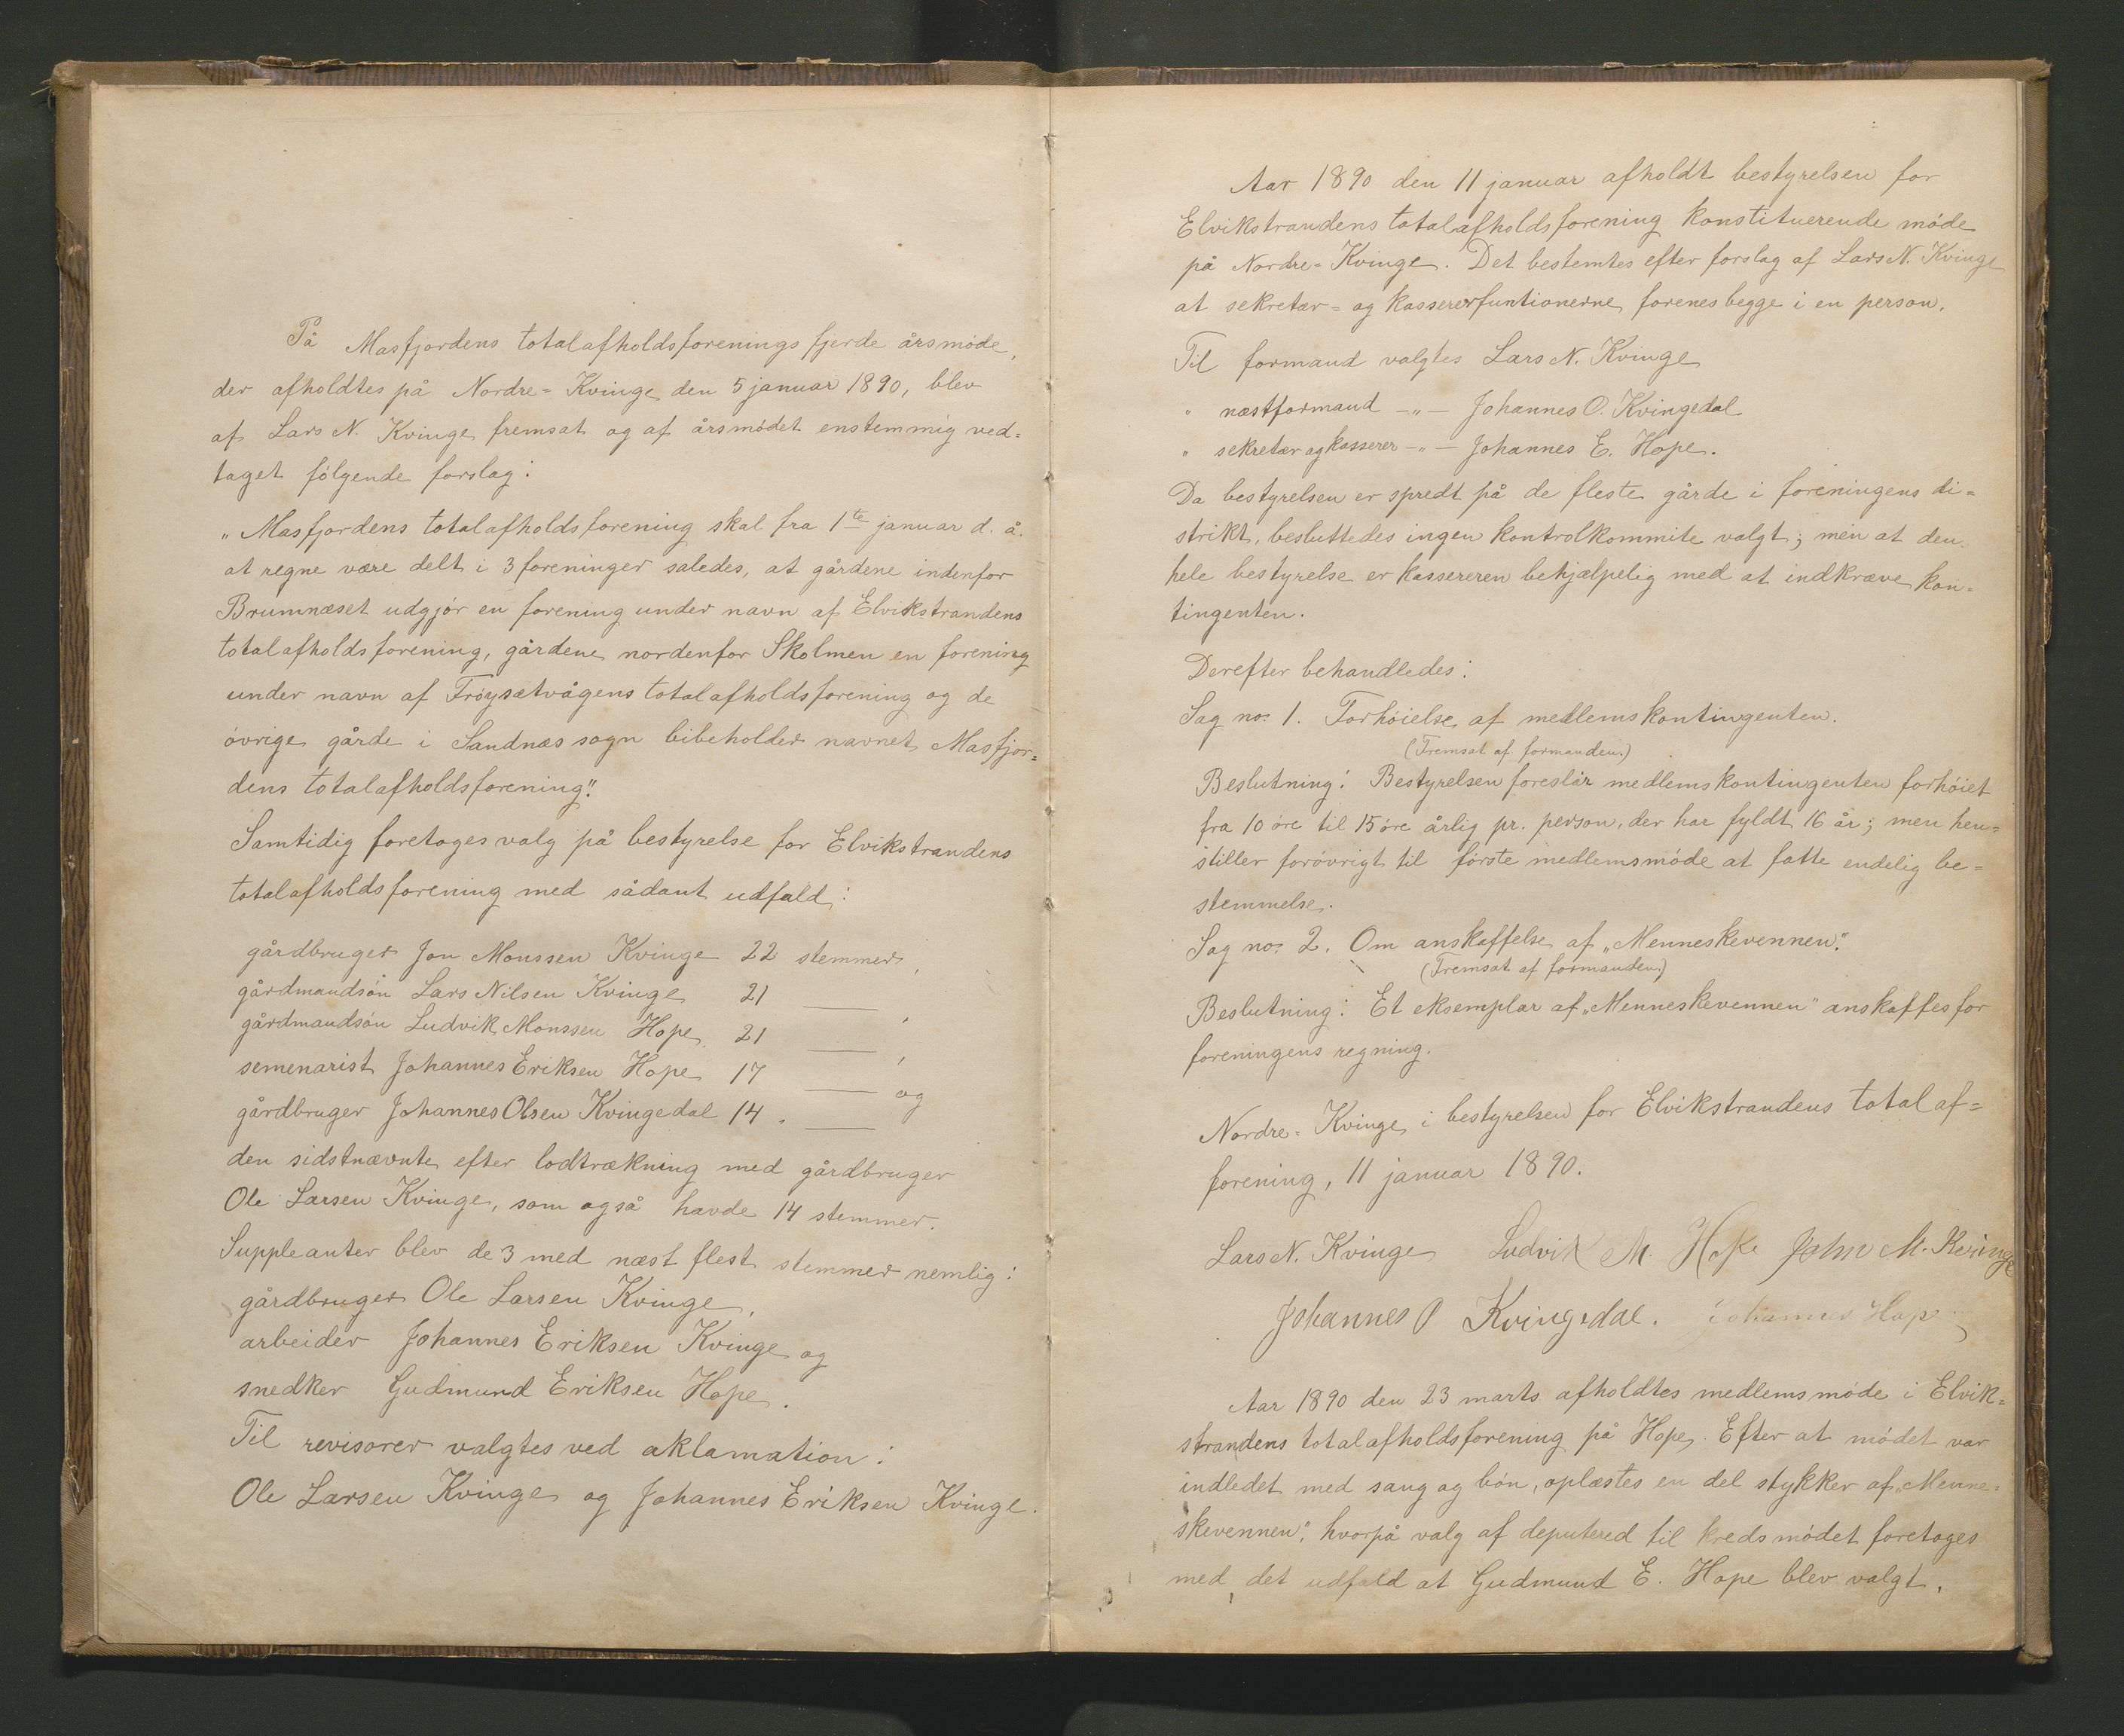 På Masfjordens totalafholdsforenings fjerde årsmøde,
der afholdtes på Nordre=Kvinge den 5 januar 1890, blev
af Lars N. Kvinge fremsat og af årsmødet enstemmig ved=
taget følgende forslag:
„Masfjordens totalafholdsforening skal fra 1te januar d. å.
at regne være delt i 3 foreninger saledes, at gårdene indenfor
Brumnæset udgjør en forening under navn af Elvikstrandens
totalafholdsforening, gårdene nordenfor Skolmen en forening
under navn af Frøysætvågens totalafholdsforening og de
øvrige gårde i Sandnæs sogn bibeholder navnet Masfjor=
dens totalafholdsforening".
Samtidig foretoges valg på bestyrelse for Elvikstrandens
totalafholdsforening med sådant udfald:
gårdbruger Jon Monssen Kvinge 22 stemmer,
gårdmandsøn Lars Nilsen Kvinge 21 — ,
gårdmandsøn Ludvik Monssen Hope 21 — ,
semenarist Johannes Eriksen Hope 17 — og
gårdbruger Johannes Olsen Kvingedal 14 . —
den sidstnævnte efter lodtrækning med gårdbruger
Ole Larsen Kvinge, som også havde 14 stemmer.
Suppleanter blev de 3 med næst flest stemmer nemlig:
gårdbruger Ole Larsen Kvinge,
arbeider Johannes Eriksen Kvinge og
snedker Gudmund Eriksen Hope.
Til revisorer valgtes ved aklamation:
Ole Larsen Kvinge og Johannes Eriksen Kvinge.
Aar 1890 den 11 januar afholdt bestyrelsen for
Elvikstrandens totalafholdsforening konstituerende møde
på Nordre=Kvinge. Det bestemtes efter forslag af Lars N. Kvinge
at sekretær= og kassererfuntionerne forenes begge i en person.
Til formand valgtes Lars N. Kvinge
" næstformand —"— Johannes O. Kvingedal
" sekretær og kasserer —"— Johannes E. Hope.
Da bestyrelsen er spredt på de fleste gårde i foreningens di=
strikt, besluttedes ingen kontrolkommite valgt; men at den
hele bestyrelse er kassereren behjælpelig med at indkræve kon=
tingenten.
Derefter behandledes:
Sag no. 1. Forhøielse af medlemskontingenten.
(Fremsat af formanden.)
Beslutning: Bestyrelsen foreslår medlemskontingenten forhøiet
fra 10 øre til 15 øre årlig pr. person, der har fyldt 16 år; men hen=
stiller forøvrigt til første medlemsmøde at fatte endelig be=
stemmelse.
Sag no. 2. Om anskaffelse af „Menneskevennen".
(Fremsat af formanden.)
Beslutning: Et eksemplar af „Menneskevennen" anskaffes for
foreningens regning.
Nordre=Kvinge i bestyrelsen for Elvikstrandens totalaf=
forening, 11 januar 1890.
Lars N. Kvinge Ludvik M. Hope John M. Kvinge
Johannes O Kvingedal. Johannes Hope
Aar 1890 den 23 marts afholdtes medlemsmøde i Elvik=
strandens totalafholdsforening på Hope. Efter at mødet var
indledet med sang og bøn, oplæstes en del stykker af „Menne=
skevennen", hvorpå valg af deputered til kredsmødet foretoges
med det udfald at Gudmund E. Hope blev valgt.